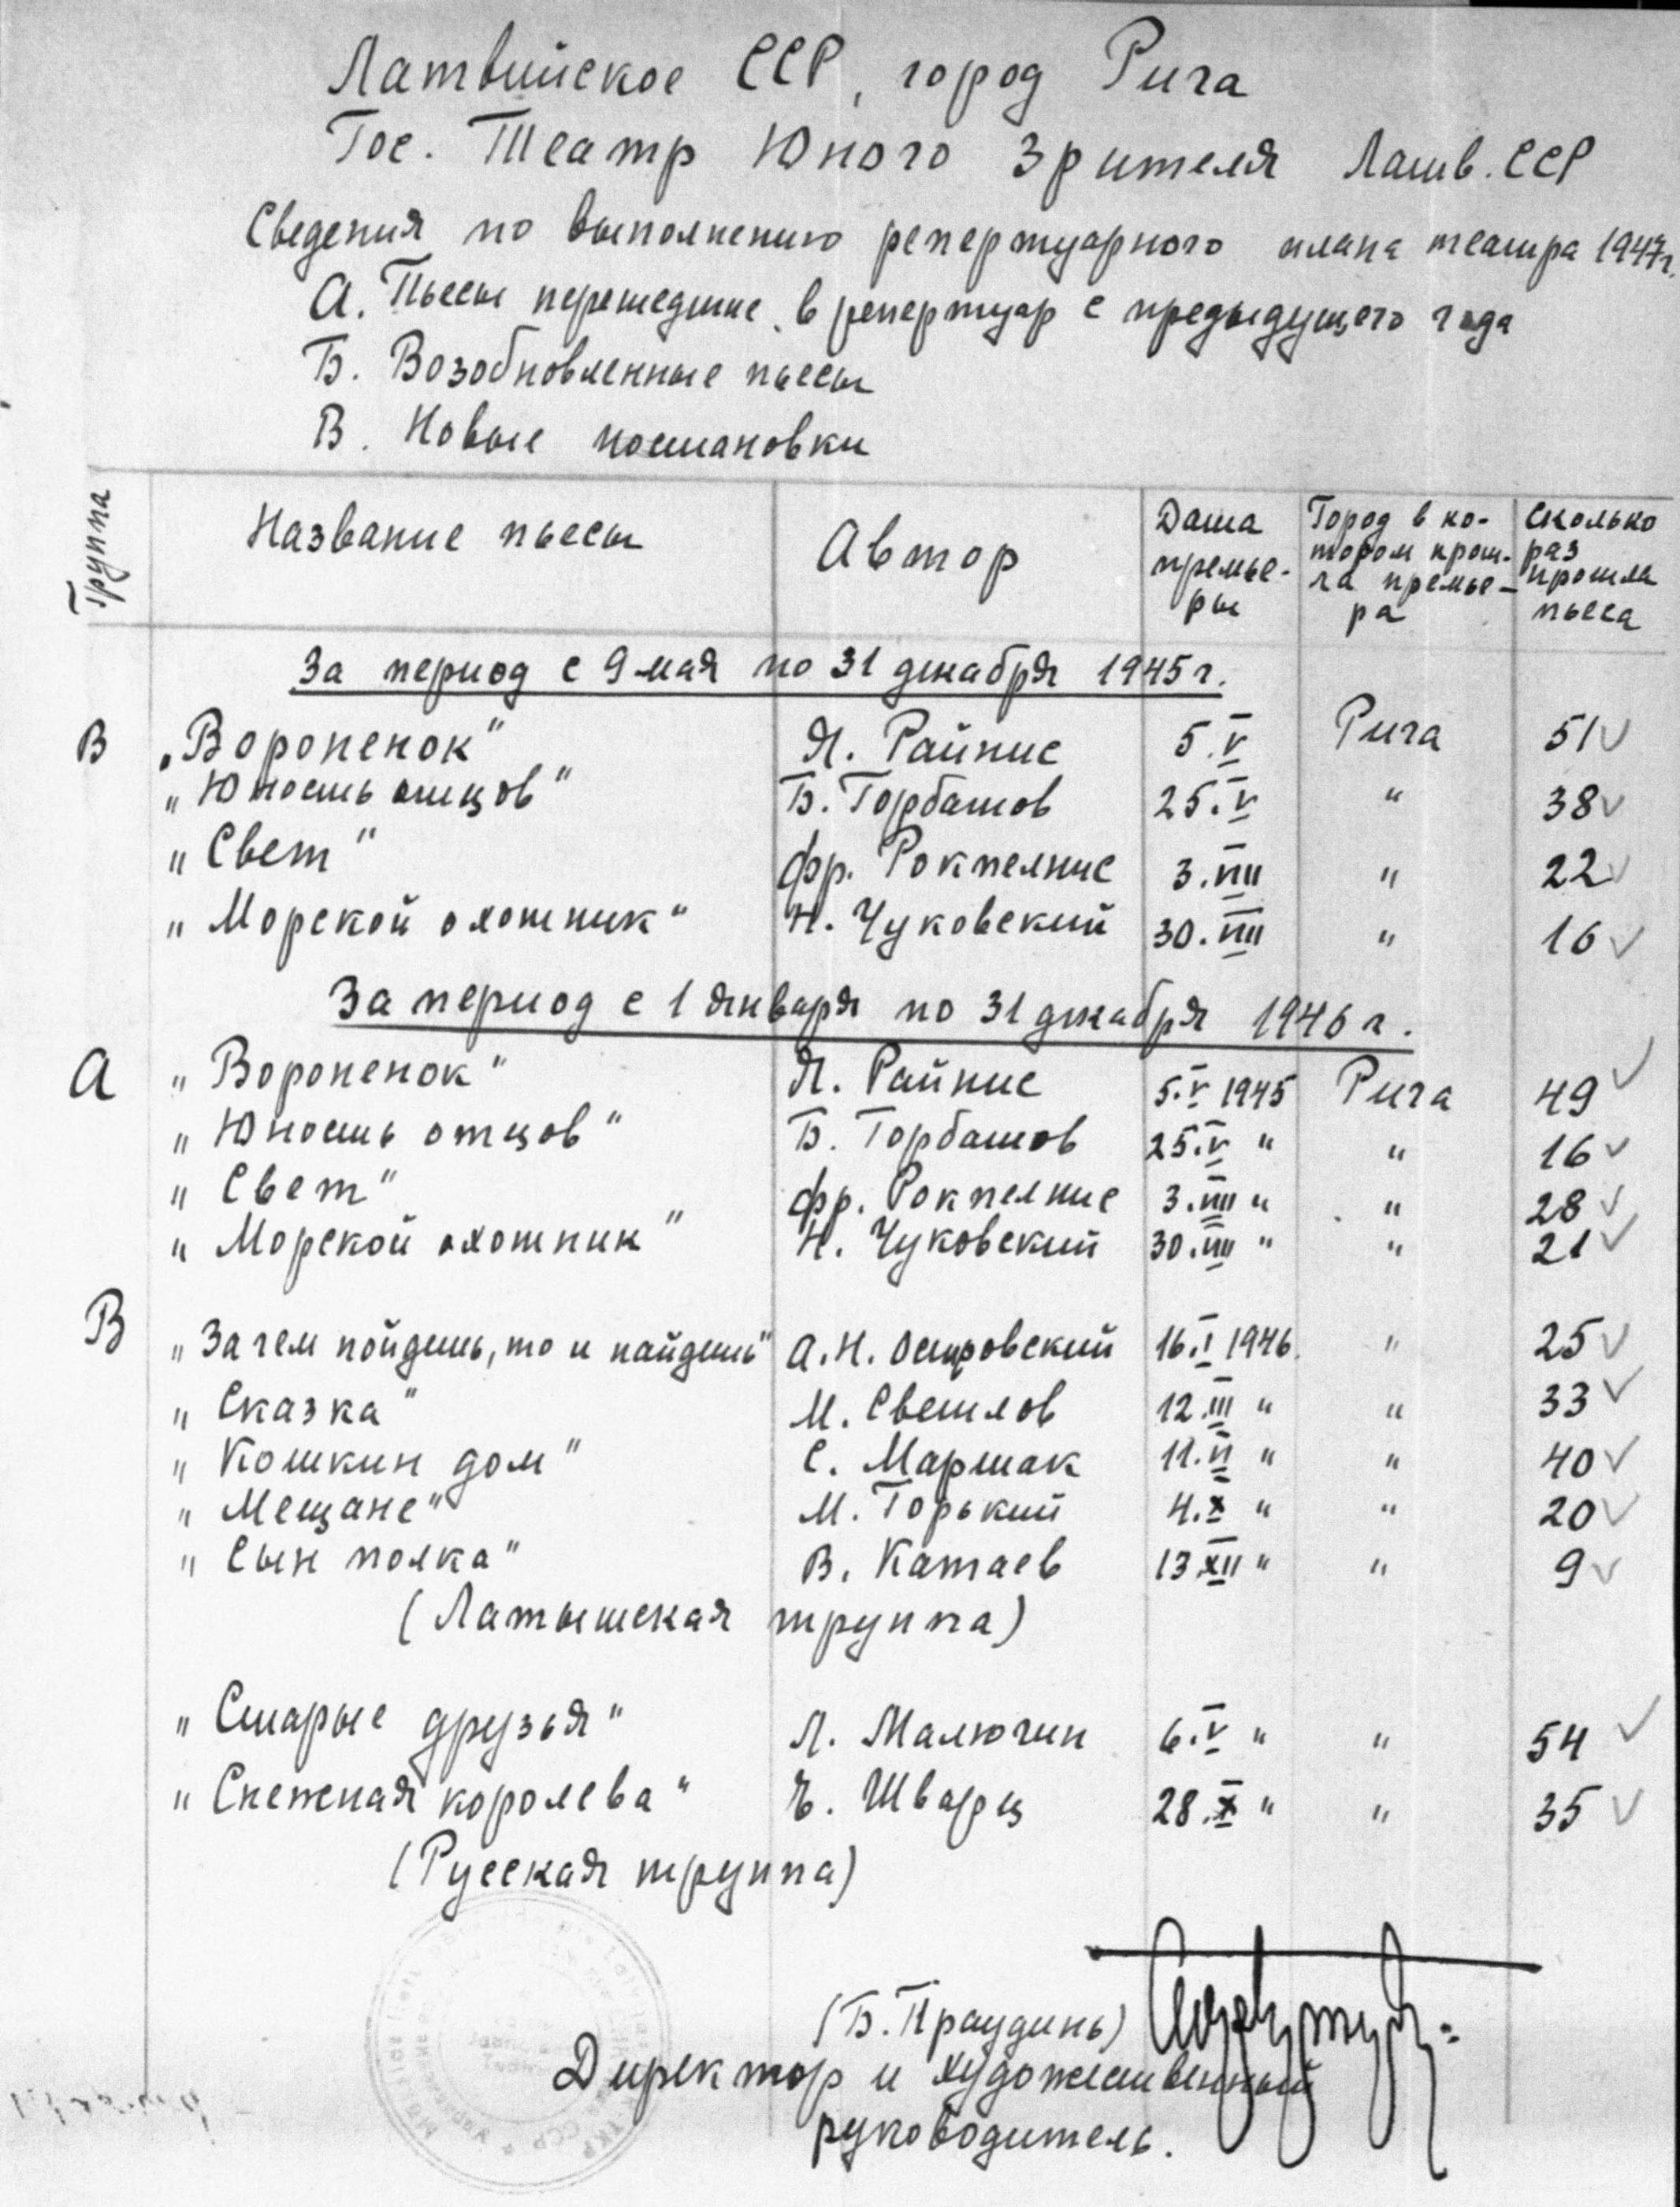 Латвийское ССР, город Рига
Гос. Театр Юного Зрителя Латв. ССР
Сведения по выполнению репертуарного плана театра 1947г.
А. Пьесы перешедшие в репертуар с предыдущего года
Б. Возобновленные пьесы
В. Новые постановки
Группа Название пьесы Автор Дата премье-ры Город в ко-тором прош-ла премье-ра Сколько раз прошла пьеса
За период с 9 мая по 31 декабря 1945 г.
В „Вороненок“ Я. Райнис 5.V Рига 51
„Юность отцов“ Б. Горбатов 25.V " 38
„Свет“ Фр. Рокпелнис 3.VIII " 22
„Морской охотник“ Н. Чуковский 30.VIII " 16
За период с 1 января по 31 декабря 1946 г.
А „Вороненок“ Я. Райнис 5.V 1945 Рига 49
„Юность отцов“ Б. Горбатов 25.V " " 16
„Свет“ Фр. Рокпелнис 3.VIII " " 28
„Морской охотник“ Н. Чуковский 30.VIII " " 21
В „За чем пойдешь, то и найдешь“ А.Н. Островский 16.I 1946. " 25
„Сказка“ М. Светлов 12.III " " 33
„Кошкин дом“ С. Маршак 11.VI " " 40
„Мещане“ М. Горький 4.X " " 20
„Сын полка“ В. Катаев 13.XII " " 9
(Латышская труппа)
„Старые друзья“ Л. Малюгин 6.V " " 54
„Снежная королева“ Е. Шварц 28.X " " 35
(Русская труппа)
(Б. Праудинь)
Директор и художественный
руководитель.